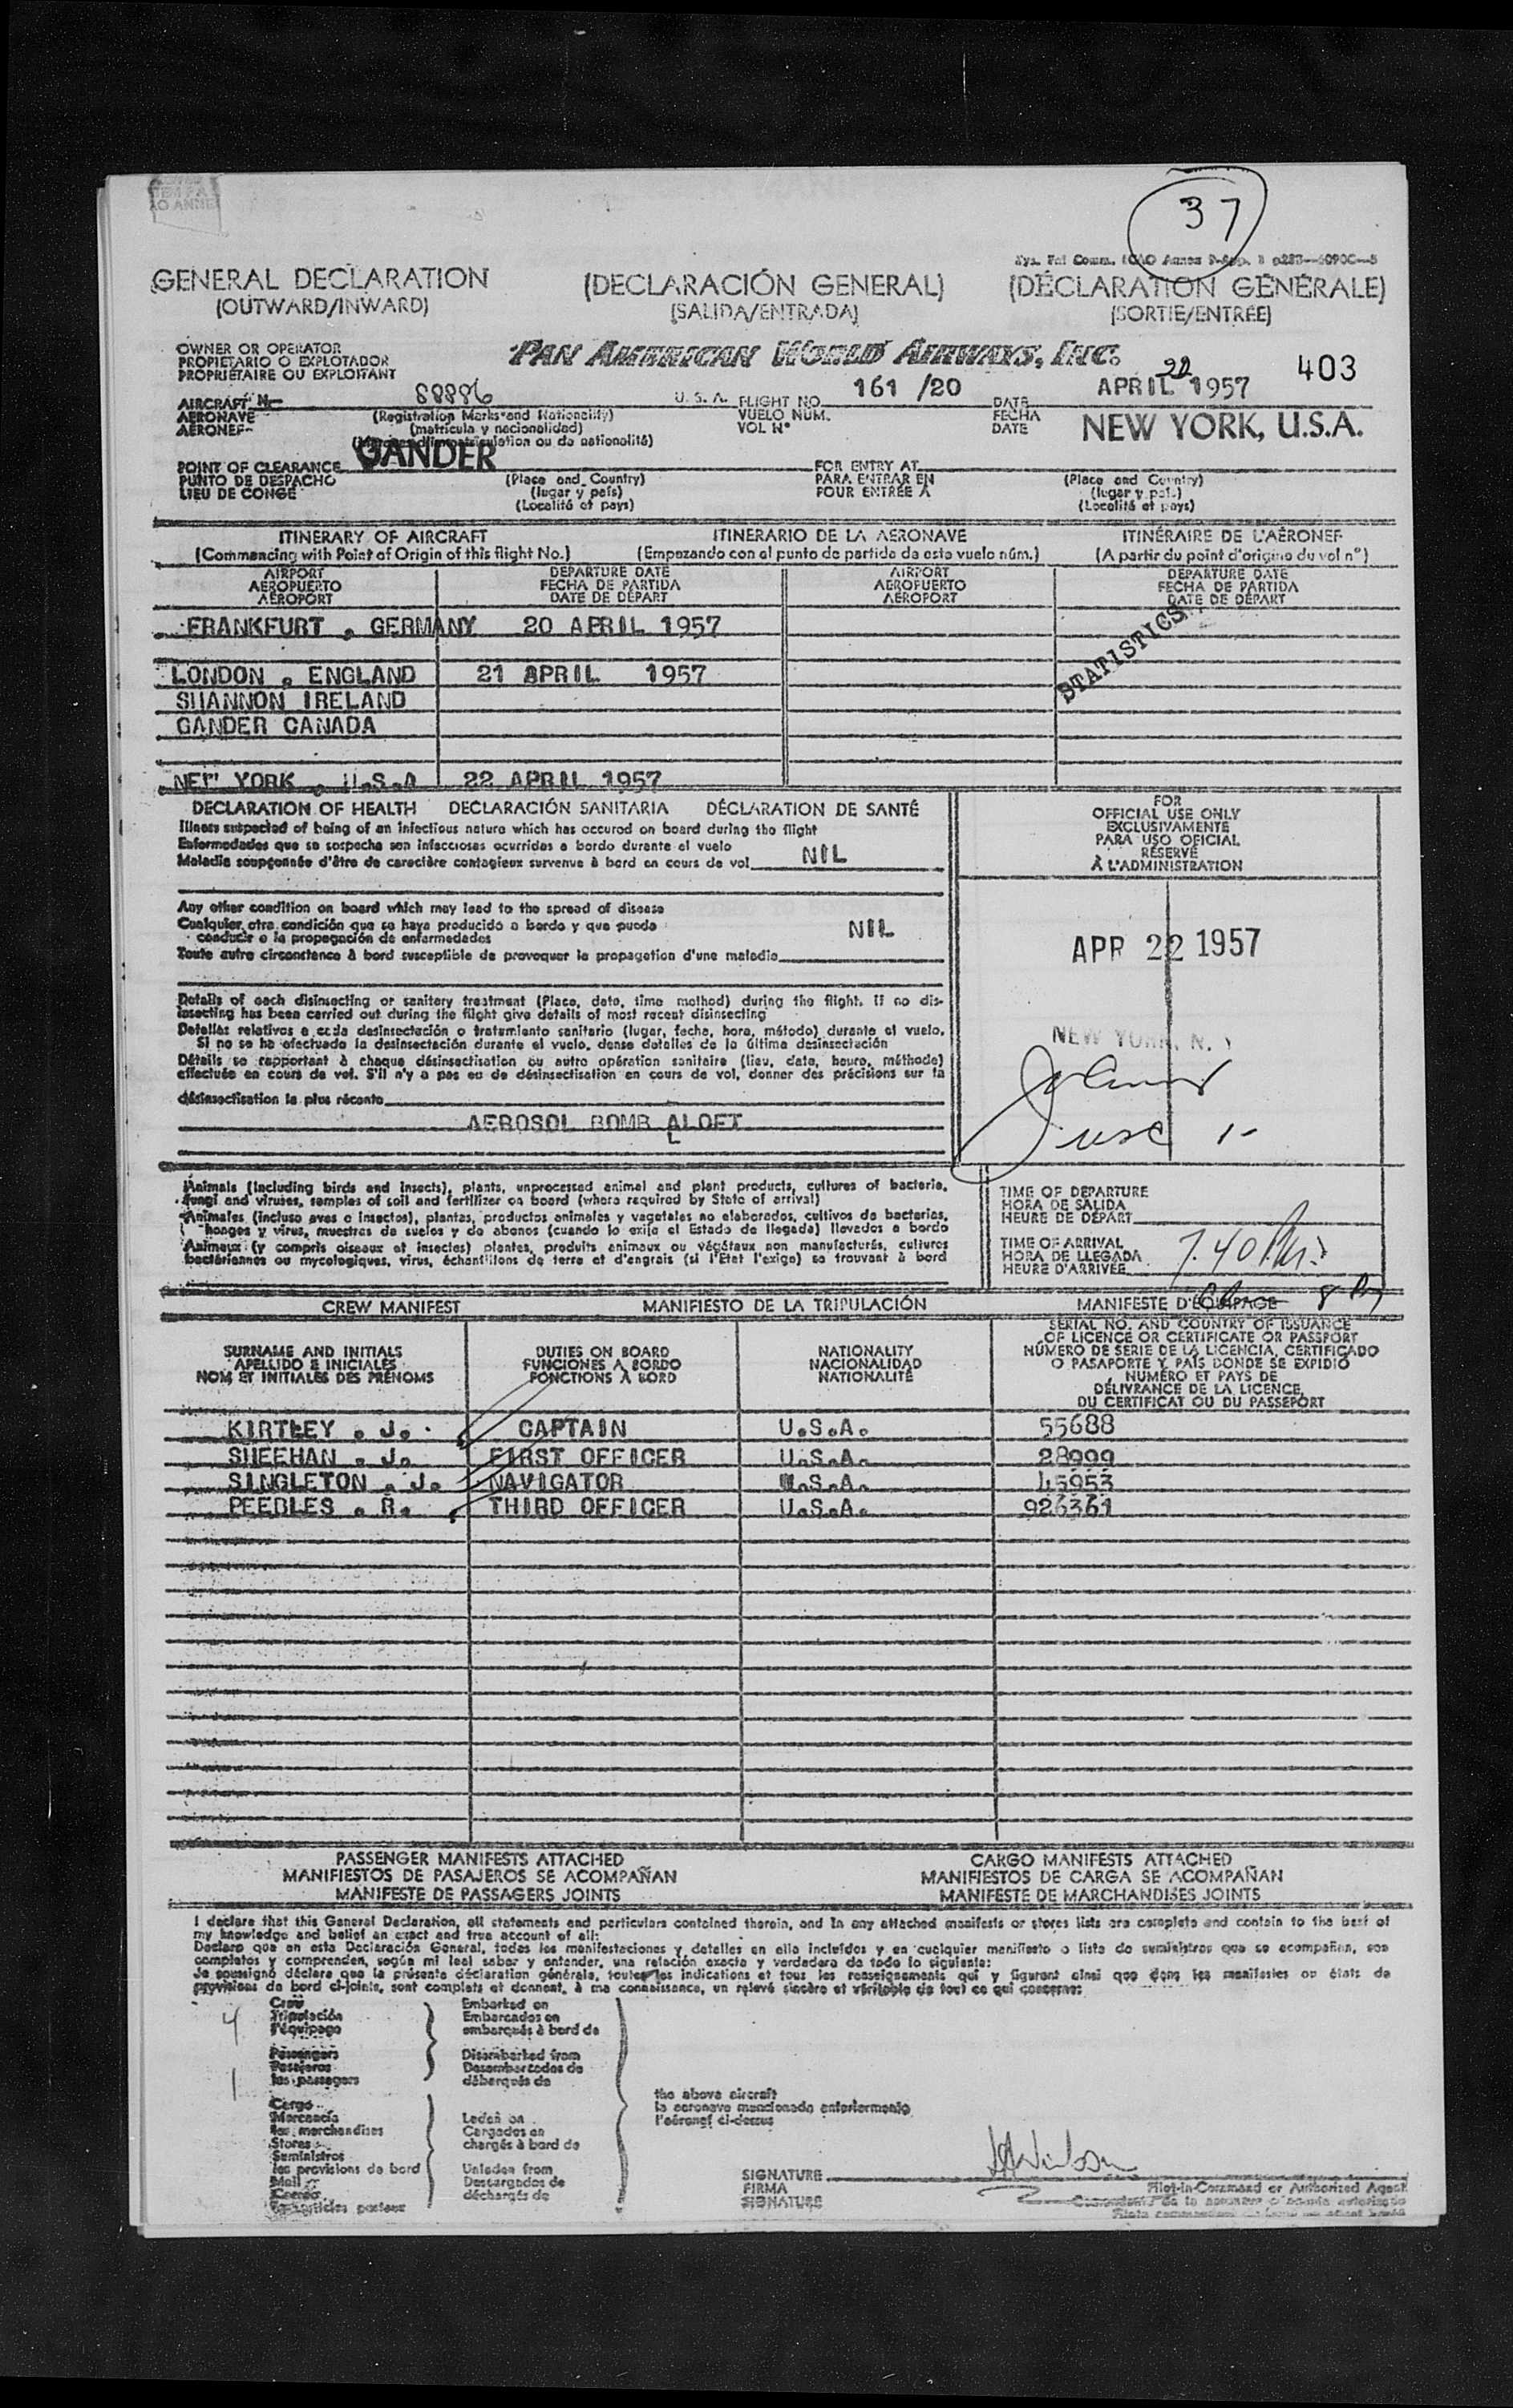 37
GENERAL DECLARATION (DECLARACIÓN GENERAL) (DÉCLARATION GÉNÉRALE)
(OUTWARD/INWARD) (SALIDA/ENTRADA) (SORTIE/ENTRÉE)
OWNER OR OPERATOR
PROPIETARIO O EXPLOTADOR
PROPRIÉTAIRE OU EXPLOITANT
PAN AMERICAN WORLD AIRWAYS, INC.
403
AIRCRAFT 88886 U.S.A. FLIGHT NO. 161 /20 DATE APRIL 22 1957
AERONAVE (Registration Marks and Nationality) VUELO NÚM. FECHA
AÉRONEF (matrícula y nacionalidad) VOL Nº DATE
NEW YORK, U.S.A.
GANDER
POINT OF CLEARANCE FOR ENTRY AT
PUNTO DE DESPACHO (Place and Country) PARA ENTRAR EN (Place and Country)
LIEU DE CONGÉ (lugar y país) POUR ENTRÉE À (lugar y país)
(Localité et pays) (Localité et pays)
ITINERARY OF AIRCRAFT ITINERARIO DE LA AERONAVE ITINÉRAIRE DE L'AÉRONEF
(Commencing with Point of Origin of this flight No.) (Empezando con el punto de partida de este vuelo núm.) (A partir du point d'origine du vol nº)
AIRPORT DEPARTURE DATE AIRPORT DEPARTURE DATE
AEROPUERTO FECHA DE PARTIDA AEROPUERTO FECHA DE PARTIDA
AÉROPORT DATE DE DÉPART AÉROPORT DATE DE DÉPART
STATISTICS
FRANKFURT , GERMANY 20 APRIL 1957
LONDON , ENGLAND 21 APRIL 1957
SHANNON IRELAND
GANDER CANADA
NEW YORK , U.S.A 22 APRIL 1957
DECLARATION OF HEALTH DECLARACIÓN SANITARIA DÉCLARATION DE SANTÉ
Illness suspected of being of an infectious nature which has occured on board during the flight
Enfermedades que se sospecha son infecciosas ocurridas a bordo durante el vuelo
Maladie soupçonnée d'être de caractère contagieux survenue à bord en cours de vol NIL
Any other condition on board which may lead to the spread of disease
Cualquier otra condición que se haya producido a bordo y que pueda
conducir a la propagación de enfermedades NIL
Toute autre circonstance à bord susceptible de provoquer la propagation d'une maladie
Details of each disinsecting or sanitary treatment (Place, date, time method) during the flight. If no dis-
insecting has been carried out during the flight give details of most recent disinsecting
Detalles relativos a cada desinsectación o tratamiento sanitario (lugar, fecha, hora, método) durante el vuelo.
Si no se ha efectuado la desinsectación durante el vuelo, dense detalles de la última desinsectación
Détails se rapportant à chaque désinsectisation ou autre opération sanitaire (lieu, date, heure, méthode)
effectuée en cours de vol. S'il n'y a pas eu de désinsectisation en cours de vol, donner des précisions sur la
désinsectisation la plus récente
AEROSOL BOMB ALOFT
FOR
OFFICIAL USE ONLY
EXCLUSIVAMENTE
PARA USO OFICIAL
RÉSERVÉ
À L'ADMINISTRATION
APR 22 1957
NEW YORK, N.
Animals (including birds and insects), plants, unprocessed animal and plant products, cultures of bacteria,
fungi and viruses, samples of soil and fertilizer on board (where required by State of arrival)
Animales (incluso aves e insectos), plantas, productos animales y vegetales no elaborados, cultivos de bacterias,
hongos y virus, muestras de suelos y de abonos (cuando lo exija el Estado de llegada) llevados a bordo
Animaux (y compris oiseaux et insectes) plantes, produits animaux ou végétaux non manufacturés, cultures
bactériennes ou mycologiques, virus, échantillons de terre et d'engrais (si l'État l'exige) se trouvant à bord
TIME OF DEPARTURE
HORA DE SALIDA
HEURE DE DÉPART
TIME OF ARRIVAL
HORA DE LLEGADA
HEURE D'ARRIVÉE
7.40 PM
CREW MANIFEST MANIFIESTO DE LA TRIPULACIÓN MANIFESTE D'ÉQUIPAGE
SURNAME AND INITIALS DUTIES ON BOARD NATIONALITY
APELLIDO E INICIALES FUNCIONES A BORDO NACIONALIDAD
NOM ET INITIALES DES PRÉNOMS FONCTIONS À BORD NATIONALITÉ
SERIAL NO. AND COUNTRY OF ISSUANCE
OF LICENCE OR CERTIFICATE OR PASSPORT
NÚMERO DE SERIE DE LA LICENCIA, CERTIFICADO
O PASAPORTE Y PAÍS DONDE SE EXPIDIÓ
NUMÉRO ET PAYS DE
DÉLIVRANCE DE LA LICENCE,
DU CERTIFICAT OU DU PASSEPORT
KIRTLEY . J. CAPTAIN U.S.A. 55688
SHEEHAN . J. FIRST OFFICER U.S.A. 28999
SINGLETON . J. NAVIGATOR U.S.A. 45953
PEEBLES . R. THIRD OFFICER U.S.A. 926361
PASSENGER MANIFESTS ATTACHED CARGO MANIFESTS ATTACHED
MANIFIESTOS DE PASAJEROS SE ACOMPAÑAN MANIFIESTOS DE CARGA SE ACOMPAÑAN
MANIFESTE DE PASSAGERS JOINTS MANIFESTE DE MARCHANDISES JOINTS
I declare that this General Declaration, all statements and particulars contained therein, and in any attached manifests or stores lists are complete and contain to the best of
my knowledge and belief an exact and true account of all:
Declaro que en esta Declaración General, todas las manifestaciones y detalles en ella incluídos y en cualquier manifiesto o lista de suministros que se acompañan, son
completos y comprenden, según mi leal saber y entender, una relación exacta y verdadera de todo lo siguiente:
Je soussigné déclare que la présente déclaration générale, toutes les indications et tous les renseignements qui y figurent ainsi que dans les manifestes ou états de
provisions de bord ci-joints, sont complets et donnent, à ma connaissance, un relevé sincère et véritable de tout ce qui concerne:
4 Crew Embarked on
Tripulación Embarcados en
l'équipage embarqués à bord de
1 Passengers Disembarked from
Pasajeros Desembarcados de
les passagers débarqués de
the above aircraft
la aeronave mencionada anteriormente
l'aéronef ci-dessus
Cargo
Mercancía Laden on
les marchandises Cargados en
Stores chargés à bord de
Suministros
les provisions de bord Unladen from
Mail Descargados de
Correo déchargés de
SIGNATURE
FIRMA
SIGNATURE
Pilot-in-Command or Authorized Agent